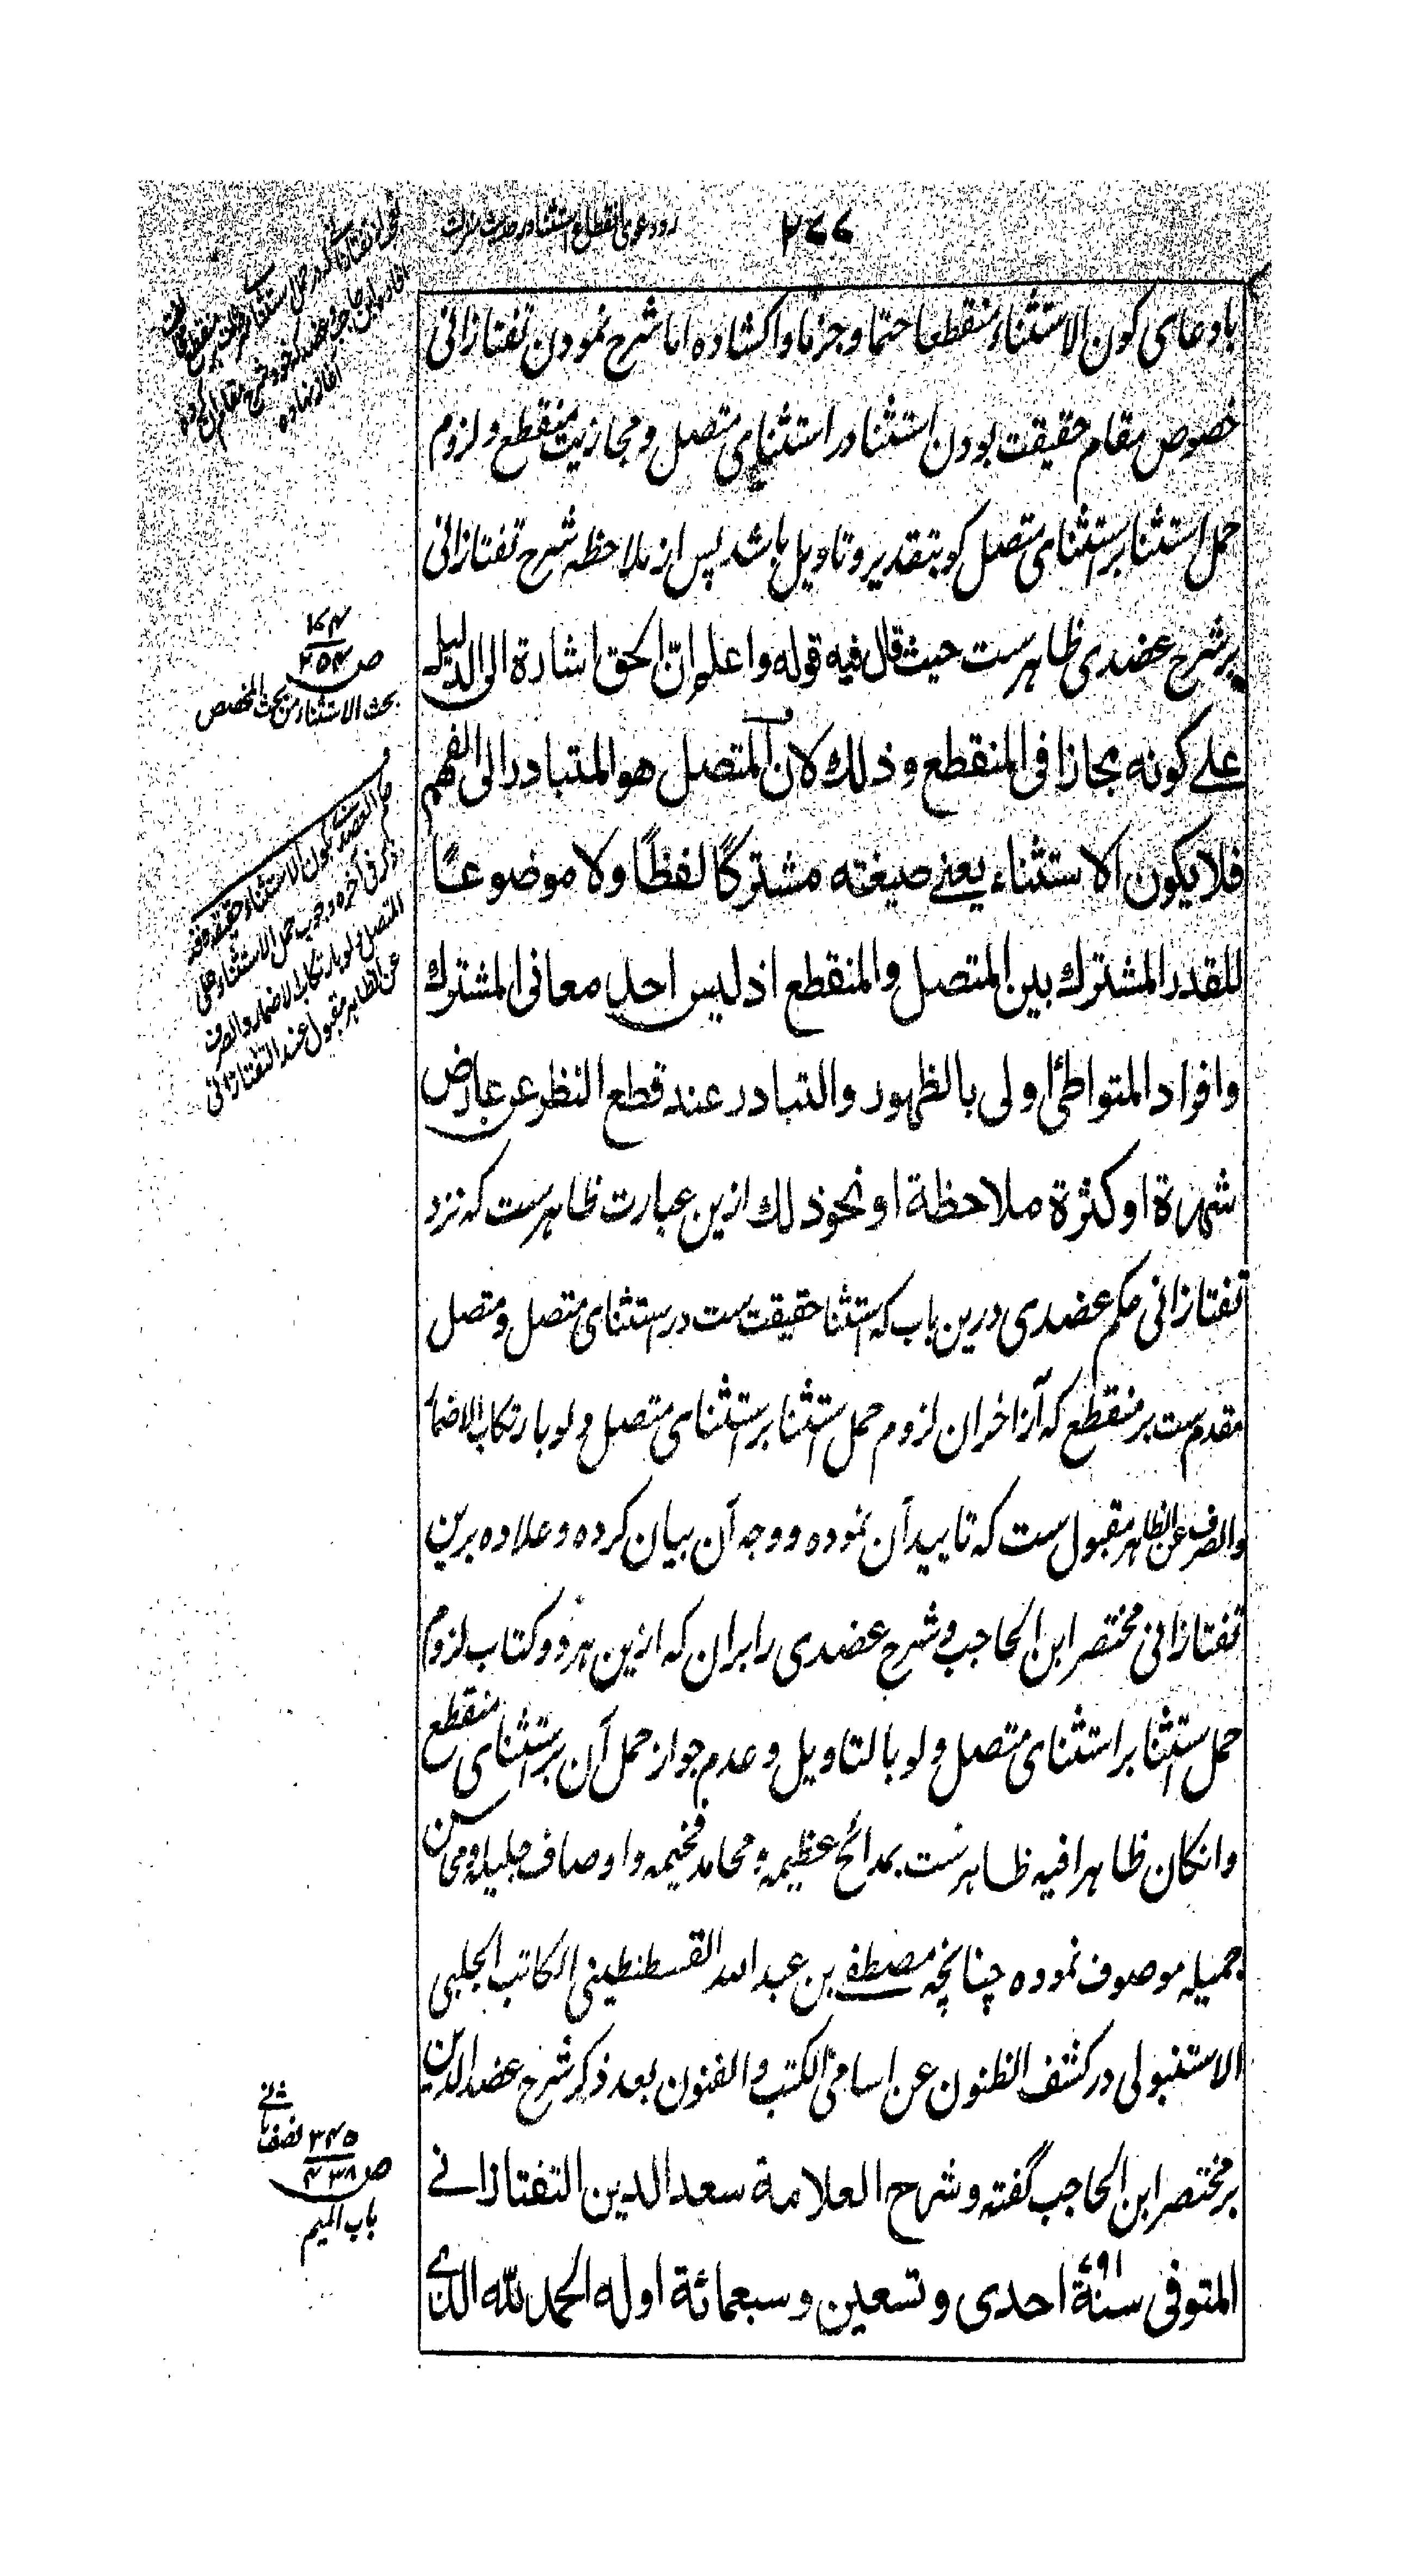 ۲۶۶
رد دعوی انقطاع استثنا در حدیث منزلت
بادعای کون الاستثناء منقطعا حتما وجزما واکشاده اما شرح نمودن تفتازانی
خصوص مقام حقیقت بودن استثنا در استثنای متصل و مجازیت منقطع و لزوم
حمل استثنا بر استثنای متصل کو بتقدیر و تاویل باشد پس از ملاحظه شرح تفتازانی
بر شرح عضدی ظاهرست حیث قال فیه قوله واعلم ان الحق اشارة الی الدلیل
علے کونه مجازا فی المنقطع و ذلك لان المتصل هو المتبادر الی الفهم
فلا یکون الاستثناء یعنے صیغته مشترکًا لفظًا ولا موضوعًا
للقدر المشترك بین المتصل والمنقطع اذ لیس احد معانی المشترك
وافراد المتواطئ اولی بالظهور والتبادر عند قطع النظر عن عارض
شهرة او کثرة ملاحظة او نحو ذلك ازین عبارت ظاهرست که نزد
تفتازانی حکم عضدی درین باب که استثنا حقیقت ست در استثنای متصل و متصل
مقدم ست بر منقطع که آنرا خران لزوم حمل استثنا بر استثنای متصل ولو بارتکاب الاضمار
والصرف عن الظاهر مقبول ست که تایید آن نموده و وجه آن بیان کرده و علاوه برین
تفتازانی مختصر ابن الحاجب و شرح عضدی را بران که ازین هردو کتاب لزوم
حمل استثنا بر استثنای متصل ولو بالتاویل و عدم جواز حمل آن بر استثنای منقطع
وانکان ظاهرا فیه ظاهرست بمدائح عظیمه و محامد فخیمه و اوصاف جلیله و محاسن
جمیله موصوف نموده چنانچه مصطفے بن عبد الله القسطنطینی الکاتب الجلبی
الاستنبولی در کشف الظنون عن اسامی الکتب والفنون بعد ذکر شرح عضد الدین
بر مختصر ابن الحاجب گفته و شرح العلامة سعد الدین التفتازانے
المتوفی سنة ۷۹۱ احدی وتسعین وسبعمائة اوله الحمد لله الذے
ص
بحث الاستثناء من بحث المخصص
حکم العضدے بکون الاستثناء حقیقة
ذکر فی آخره وجوب حمل الاستثناء علی
المتصل ولو بارتکاب الاضمار والصرف
عن الظاهر مقبول عند التفتازانی
نصف ثانے
ص ۳۴۵ ۴۳۸
باب المیم